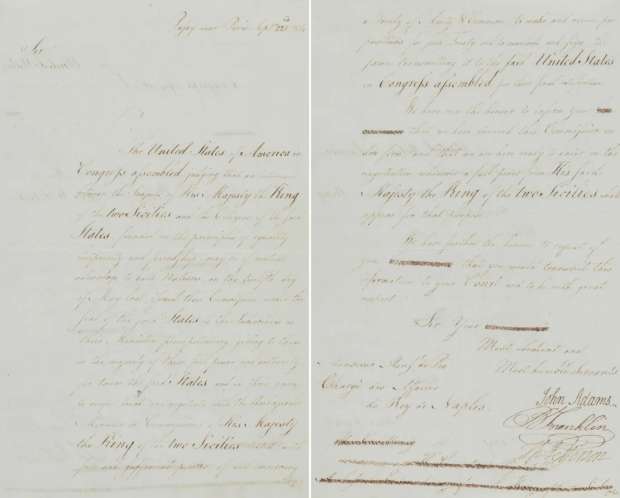 Passy near Paris Sept. 22d 1784
Sir
The United States of America in
Congress assembled judging that an intercourse
between the Subjects of His Majesty the King
of the two Sicilies and the Citizens of the said
States, founded on the principles of equality
reciprocity and friendship, may be of mutual
advantage to both Nations, on the twelfth day
of May last, issued their Commission under the
seal of the said States, to the Subscribers as
their Ministers plenipotentiary, giving to them
or the majority of them full power and authority
for them the said States and in their name
to and negotiate with the
of His Majesty
the King of the two Sicilies
a Treaty of Amity & Commerce to make and receive
propositions for such Treaty and to conclude and sign the
same transmitting it to the said United States
in Congress assembled for their final ratification.
We have now the honour to inform your
that we have received this Commission in
due form, and that we are here ready to enter on the
negotiation whenever a full power from His said
Majesty the King of the two Sicilies shall
appear for that purpose.
We have further the honour to request of
your that you would transmit this
information to your Court and to be with great
respect
Sir Your
Most obedient and
Most humble Servants
Monsieur
Chargé des Affaires
du Roy de Naples.
John Adams
B Franklin